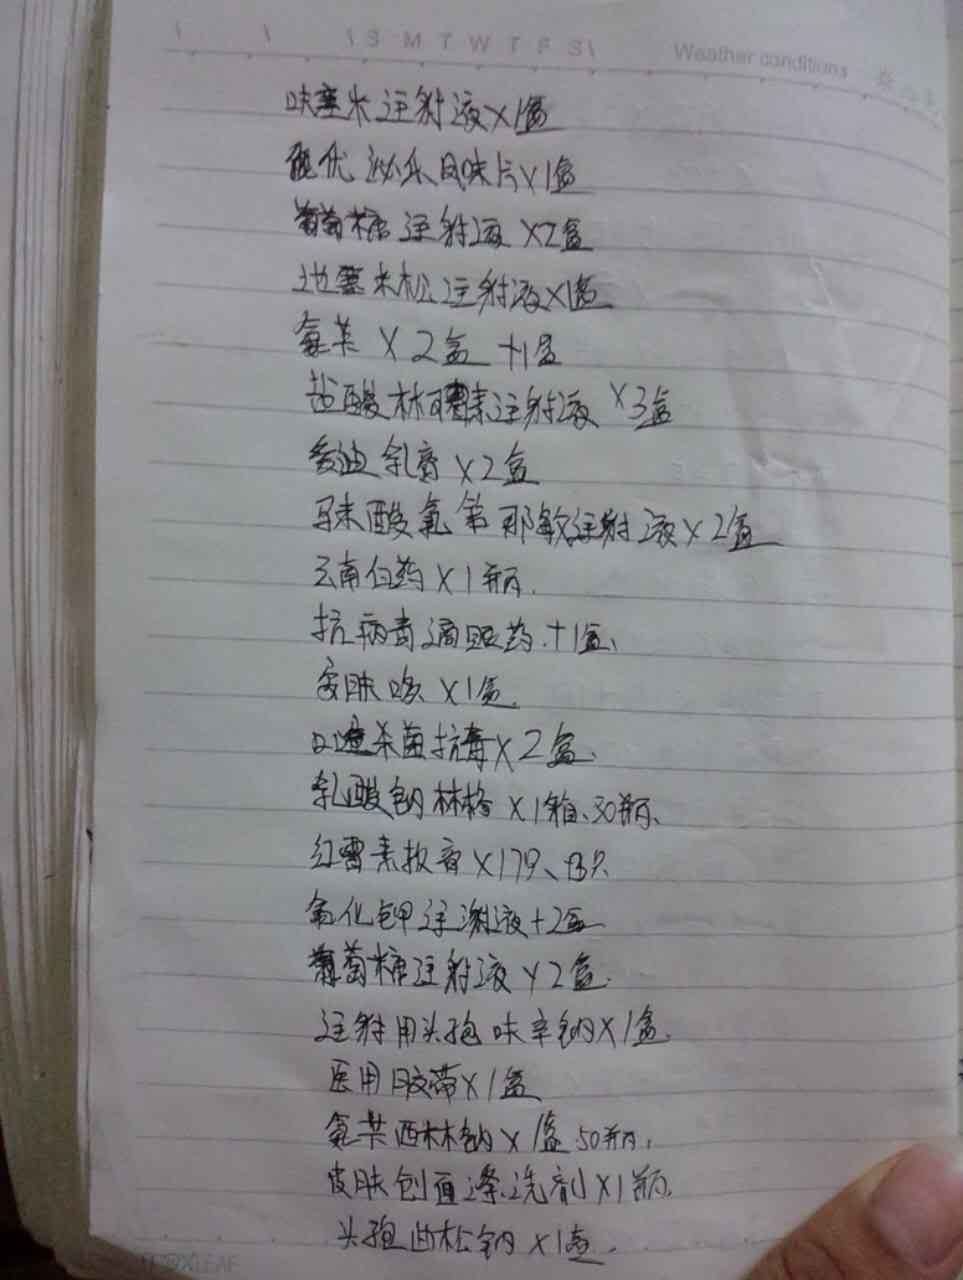 S M T W T F S Weather conditions
呋塞米注射液×1盒
能优 泌乐风味片×1盒
葡萄糖注射液×2盒
地塞米松注射液×1盒
氨苄×2盒+1盒
盐酸林可霉素注射液×3盒
乳膏×2盒
马来酸氯苯那敏注射液×2盒
云南白药×1瓶.
抗病毒滴眼药.+1盒、
安肤×1盒.
口喷杀菌抗毒×2盒.
乳酸钠林格×1箱、30瓶、
红霉素软膏×17只、13只
氯化钾注射液+2盒
葡萄糖注射液×2盒.
注射用头孢呋辛钠×1盒.
医用胶带×1盒
氨苄西林钠×1盒.50瓶.
皮肤创面洗剂×1瓶.
头孢曲松钠×1盒.